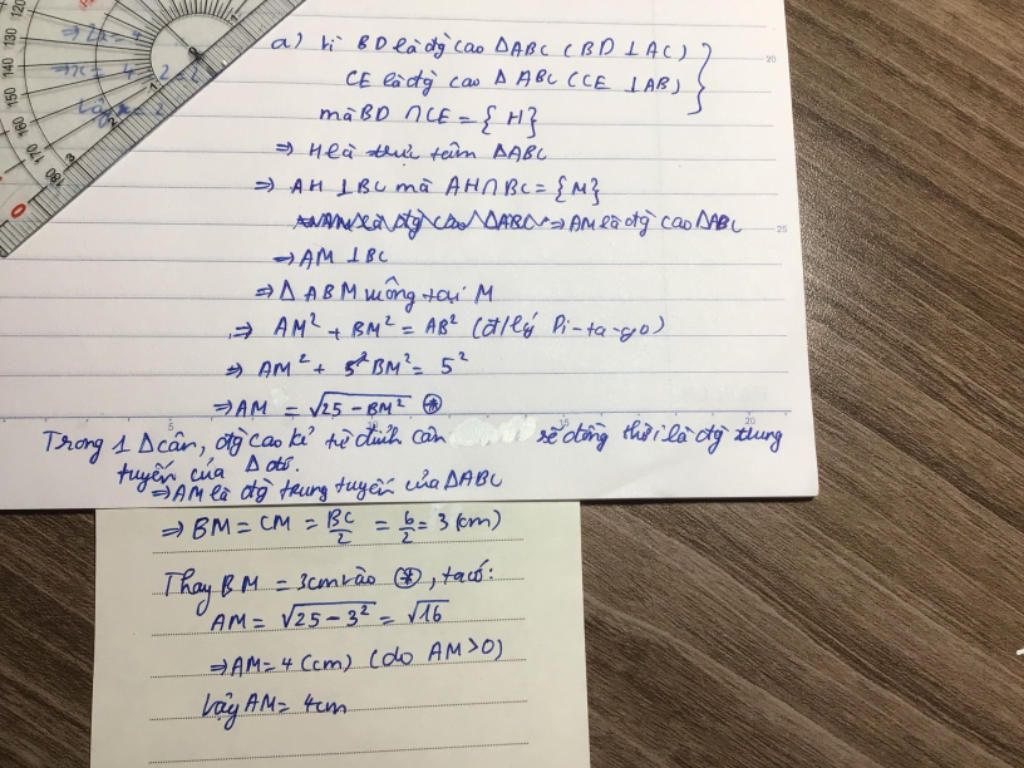 120
130
140
150
160
170
180
0
1
2
3
⇒ 2x = 4
⇒ x = 4 : 2 = 2
Vậy x = 2
20
25
a) Vì BD là đg cao ΔABC (BD ⊥ AC)
CE là đg cao Δ ABC (CE ⊥ AB) }
mà BD ∩ CE = { H}
⇒ H là trực tâm ΔABC
⇒ AH ⊥ BC mà AH ∩ BC = {M}
AM là đg cao ΔABC ⇒ AM là đg cao ΔABC
⇒ AM ⊥ BC
⇒ Δ ABM vuông tại M
⇒ AM² + BM² = AB² (đ/lý Pi-ta-go)
⇒ AM² + 5² BM² = 5²
⇒ AM = √25 - BM² ⊛
5 10 15 20
Trong 1 Δ cân, đg cao kẻ từ đỉnh cân sẽ đồng thời là đg trung
tuyến của Δ đó.
⇒ AM là đg trung tuyến của ΔABC
⇒ BM = CM = BC/2 = 6/2 = 3 (cm)
Thay BM = 3cm vào ⊛, ta có:
AM = √25 - 3² = √16
⇒ AM = 4 (cm) (do AM > 0)
Vậy AM = 4cm